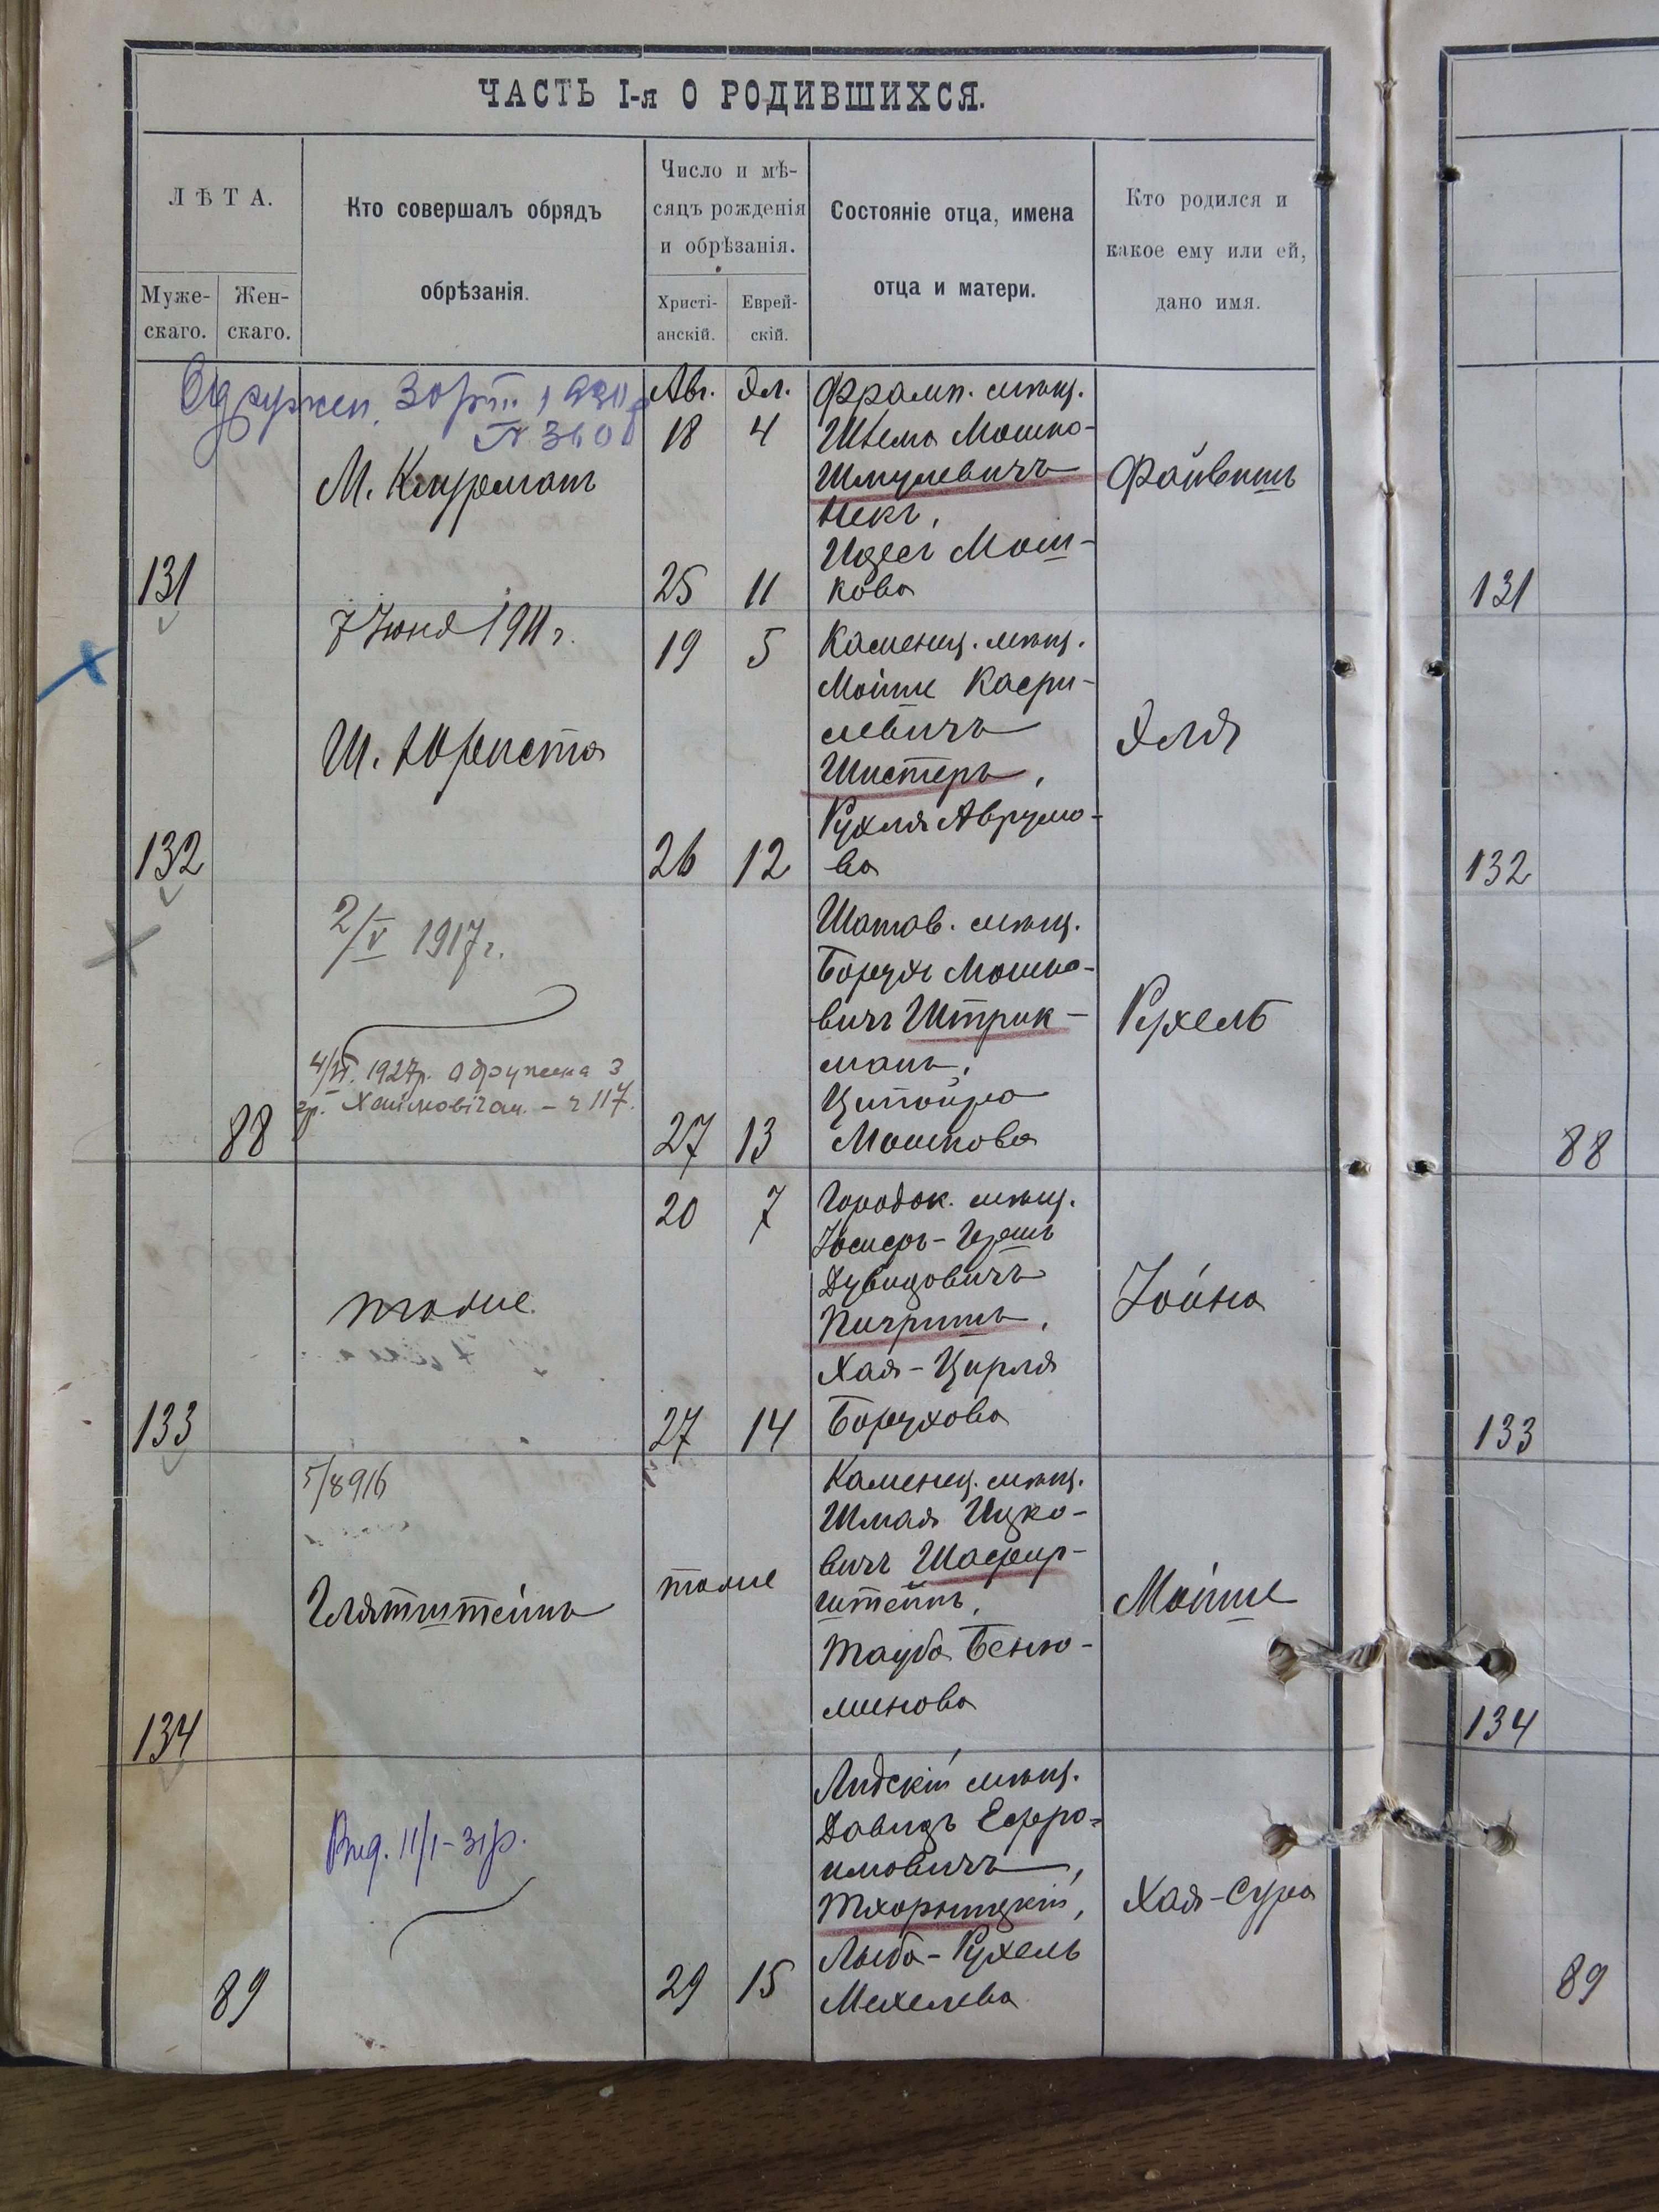 ЧАСТЬ I-я О РОДИВШИХСЯ.
ЛѢТА.
Муже-
скаго.
Жен-
скаго.
Кто совершалъ обрядъ
обрѣзанія.
Число и мѣ-
сяцъ рожденія
и обрѣзанія.
Христі-
анскій.
Еврей-
скій.
Состояніе отца, имена
отца и матери.
Кто родился и
какое ему или ей,
дано имя.
Авг. Эл.
18 4
М. Клурманъ
131
25 11
Фрамп. мѣщ.
Мошко-
Шмулевичъ
Идесъ Мош-
кова
Файвишъ
131
7 Іюня 1911 г.
Ш. Юриста
132
19 5
26 12
Каменец. мѣщ.
Мойше Касри-
левичъ
Шистеръ,
Рухля Аврумо-
ва
Эля
132
2/V 1917 г.
4/VI. 1927р. Одружена з
гр. Хаймовічам. – ч 117.
88
27 13
Шатав. мѣщ.
Борухъ Мошко-
вичъ Штрик-
манъ,
Ципойра
Мошкова
Рухель
88
тоже.
133
20 7
27 14
Городок. мѣщ.
Іосифъ-Гершъ
Дувидовичъ
Пичришъ,
Хая-Цирля
Борухова
Іойна
133
5/8 916
Глятштейнъ
134
тоже
Каменец. мѣщ.
Шмая Ицко-
вичъ Шафир-
штейнъ,
Тауба Беню-
минова
Мойше
134
Вид. 11/I–31р.
89
29 15
Лидскій мѣщ.
Давидъ Ефро-
имовичъ,
Тхорницкій,
Лыба-Рухель
Мехелева
Хая-Сура
89